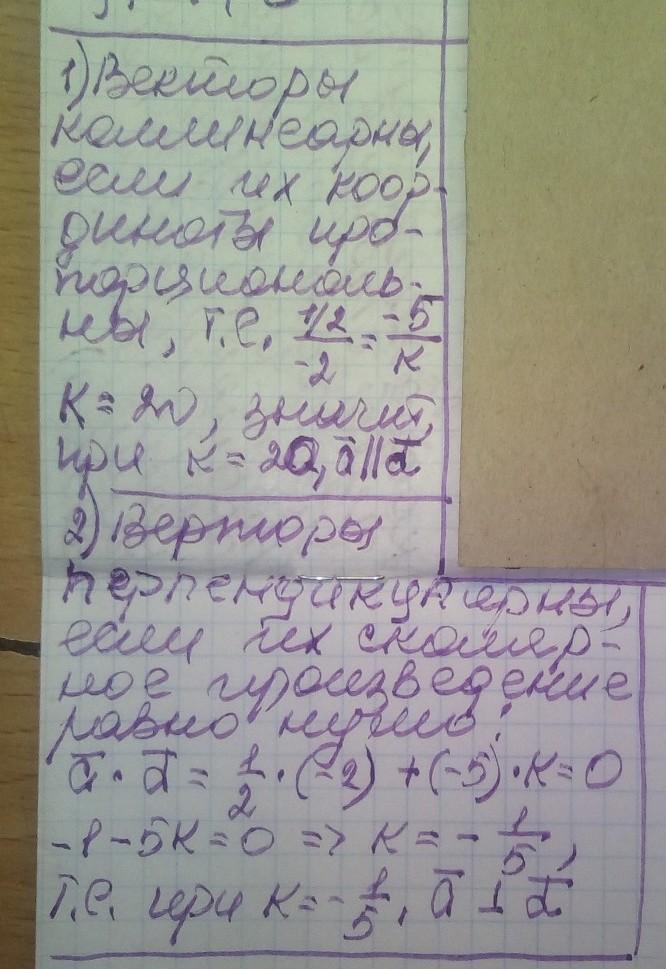 1) Векторы
коллинеарны,
если их коор-
динаты про-
порциональ-
ны, т.е. 1/2/-2 = -5/к
К = 20, значит,
при к = 20, ā || d̄
2) Верторы
перпендикулярны,
если их скаляр-
ное произведение
равно нулю:
ā · d̄ = 1/2 · (-2) + (-5) · к = 0
-1 - 5к = 0 => к = - 1/5,
т.е. при к = - 1/5, ā ⊥ d̄